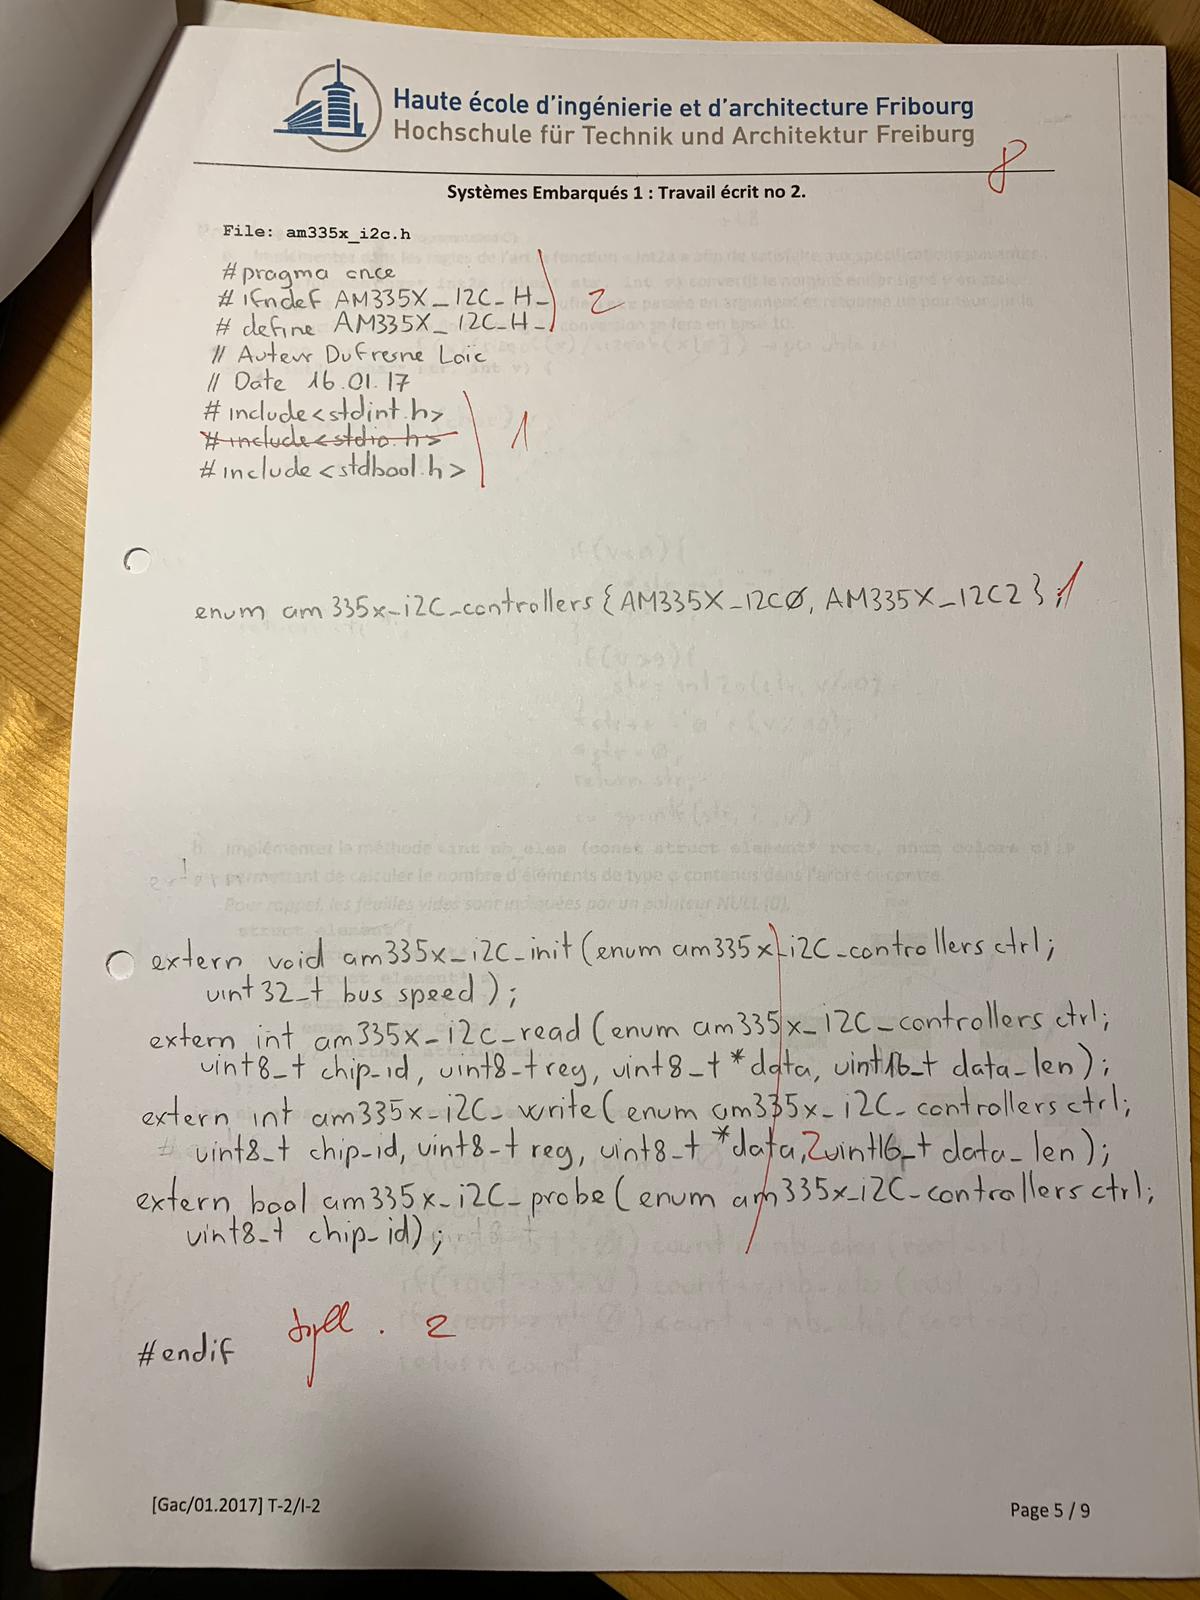 Haute école d'ingénierie et d'architecture Fribourg
Hochschule für Technik und Architektur Freiburg
8
Systèmes Embarqués 1 : Travail écrit no 2.
File: am335x_i2c.h
#pragma once
#ifndef AM335X_I2C_H_
# define AM335X_I2C_H_
2
// Auteur Dufresne Loïc
// Date 16.01.17
#include<stdint.h>
#include<stdio.h>
1
#include<stdbool.h>
enum am335x_i2C_controllers {AM335X_I2C0, AM335X_I2C2};
1
extern void am335x_i2C_init(enum am335x_i2C_controllers ctrl;
uint32_t bus speed);
extern int am335x_i2c_read(enum am335x_i2C_controllers ctrl;
uint8_t chip_id, uint8_t reg, uint8_t *data, uint16_t data_len);
extern int am335x_i2C_write(enum am335x_i2C_controllers ctrl;
uint8_t chip_id, uint8_t reg, uint8_t *data, uint16_t data_len);
2
extern bool am335x_i2C_probe(enum am335x_i2C_controllers ctrl;
uint8_t chip_id);
2
#endif
[Gac/01.2017] T-2/I-2
Page 5 / 9